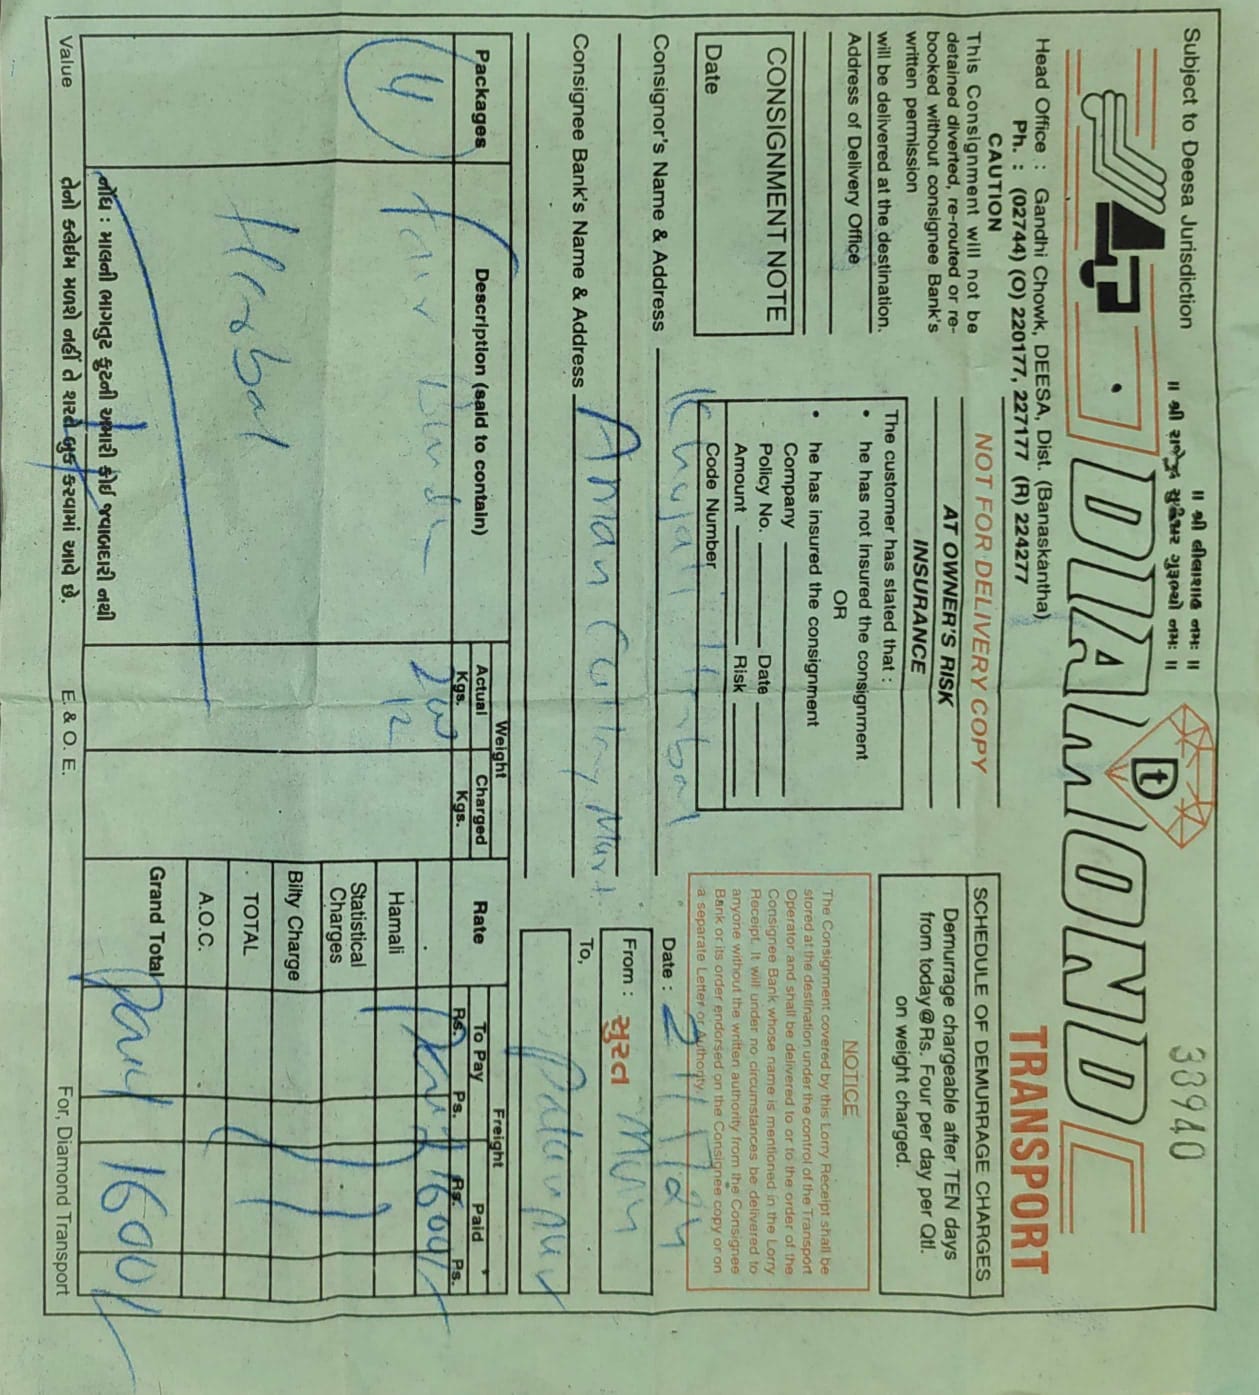 Subject to Deesa Jurisdiction
॥ શ્રી
નમઃ ॥
॥ શ્રી રાજેન્દ્ર
ગુરૂભ્યો નમઃ ॥
38940
DIAMOND
TRANSPORT
t
Head Office : Gandhi Chowk, DEESA, Dist. (Banaskantha)
Ph. : (02744) (O) 220177, 227177 (R) 224277
CAUTION
This Consignment will not be
detained diverted, re-routed or re-
booked without consignee Bank's
written permission
will be delivered at the destination.
Address of Delivery Office
CONSIGNMENT NOTE
Date
NOT FOR DELIVERY COPY
AT OWNER'S RISK
INSURANCE
The customer has stated that :
• he has not insured the consignment
OR
• he has insured the consignment
Company
Policy No. Date
Amount Risk
Code Number
SCHEDULE OF DEMURRAGE CHARGES
Demurrage chargeable after TEN days
from today@Rs. Four per day per Qtl.
on weight charged.
NOTICE
The Consignment covered by this Lorry Receipt shall be
stored at the destination under the control of the Transport
Operator and shall be delivered to or to the order of the
Consignee Bank whose name is mentioned in the Lorry
Receipt. It will under no circumstances be delivered to
anyone without the written authority from the Consignee
Bank or its order endorsed on the Consignee copy or on
a separate Letter or Authority
Consignor's Name & Address
Date :
Consignee Bank's Name & Address Aman
From : સુરત
To,
Packages
Description (said to contain)
Weight
Actual Kgs.
Charged Kgs.
Rate
Freight
To Pay
Rs. Ps.
Paid
Rs. Ps.
4
200
12
1600/-
Hamali
Statistical Charges
Bilty Charge
TOTAL
A.O.C.
Grand Total Paid 1600/-
નોંધ : માલની ભાગતુટ ફુટની અમારી કોઈ જવાબદારી નથી
તેનો કલેઈમ મળશે નહીં તે શરતે બુક કરવામાં આવે છે.
Value
E. & O. E.
For, Diamond Transport